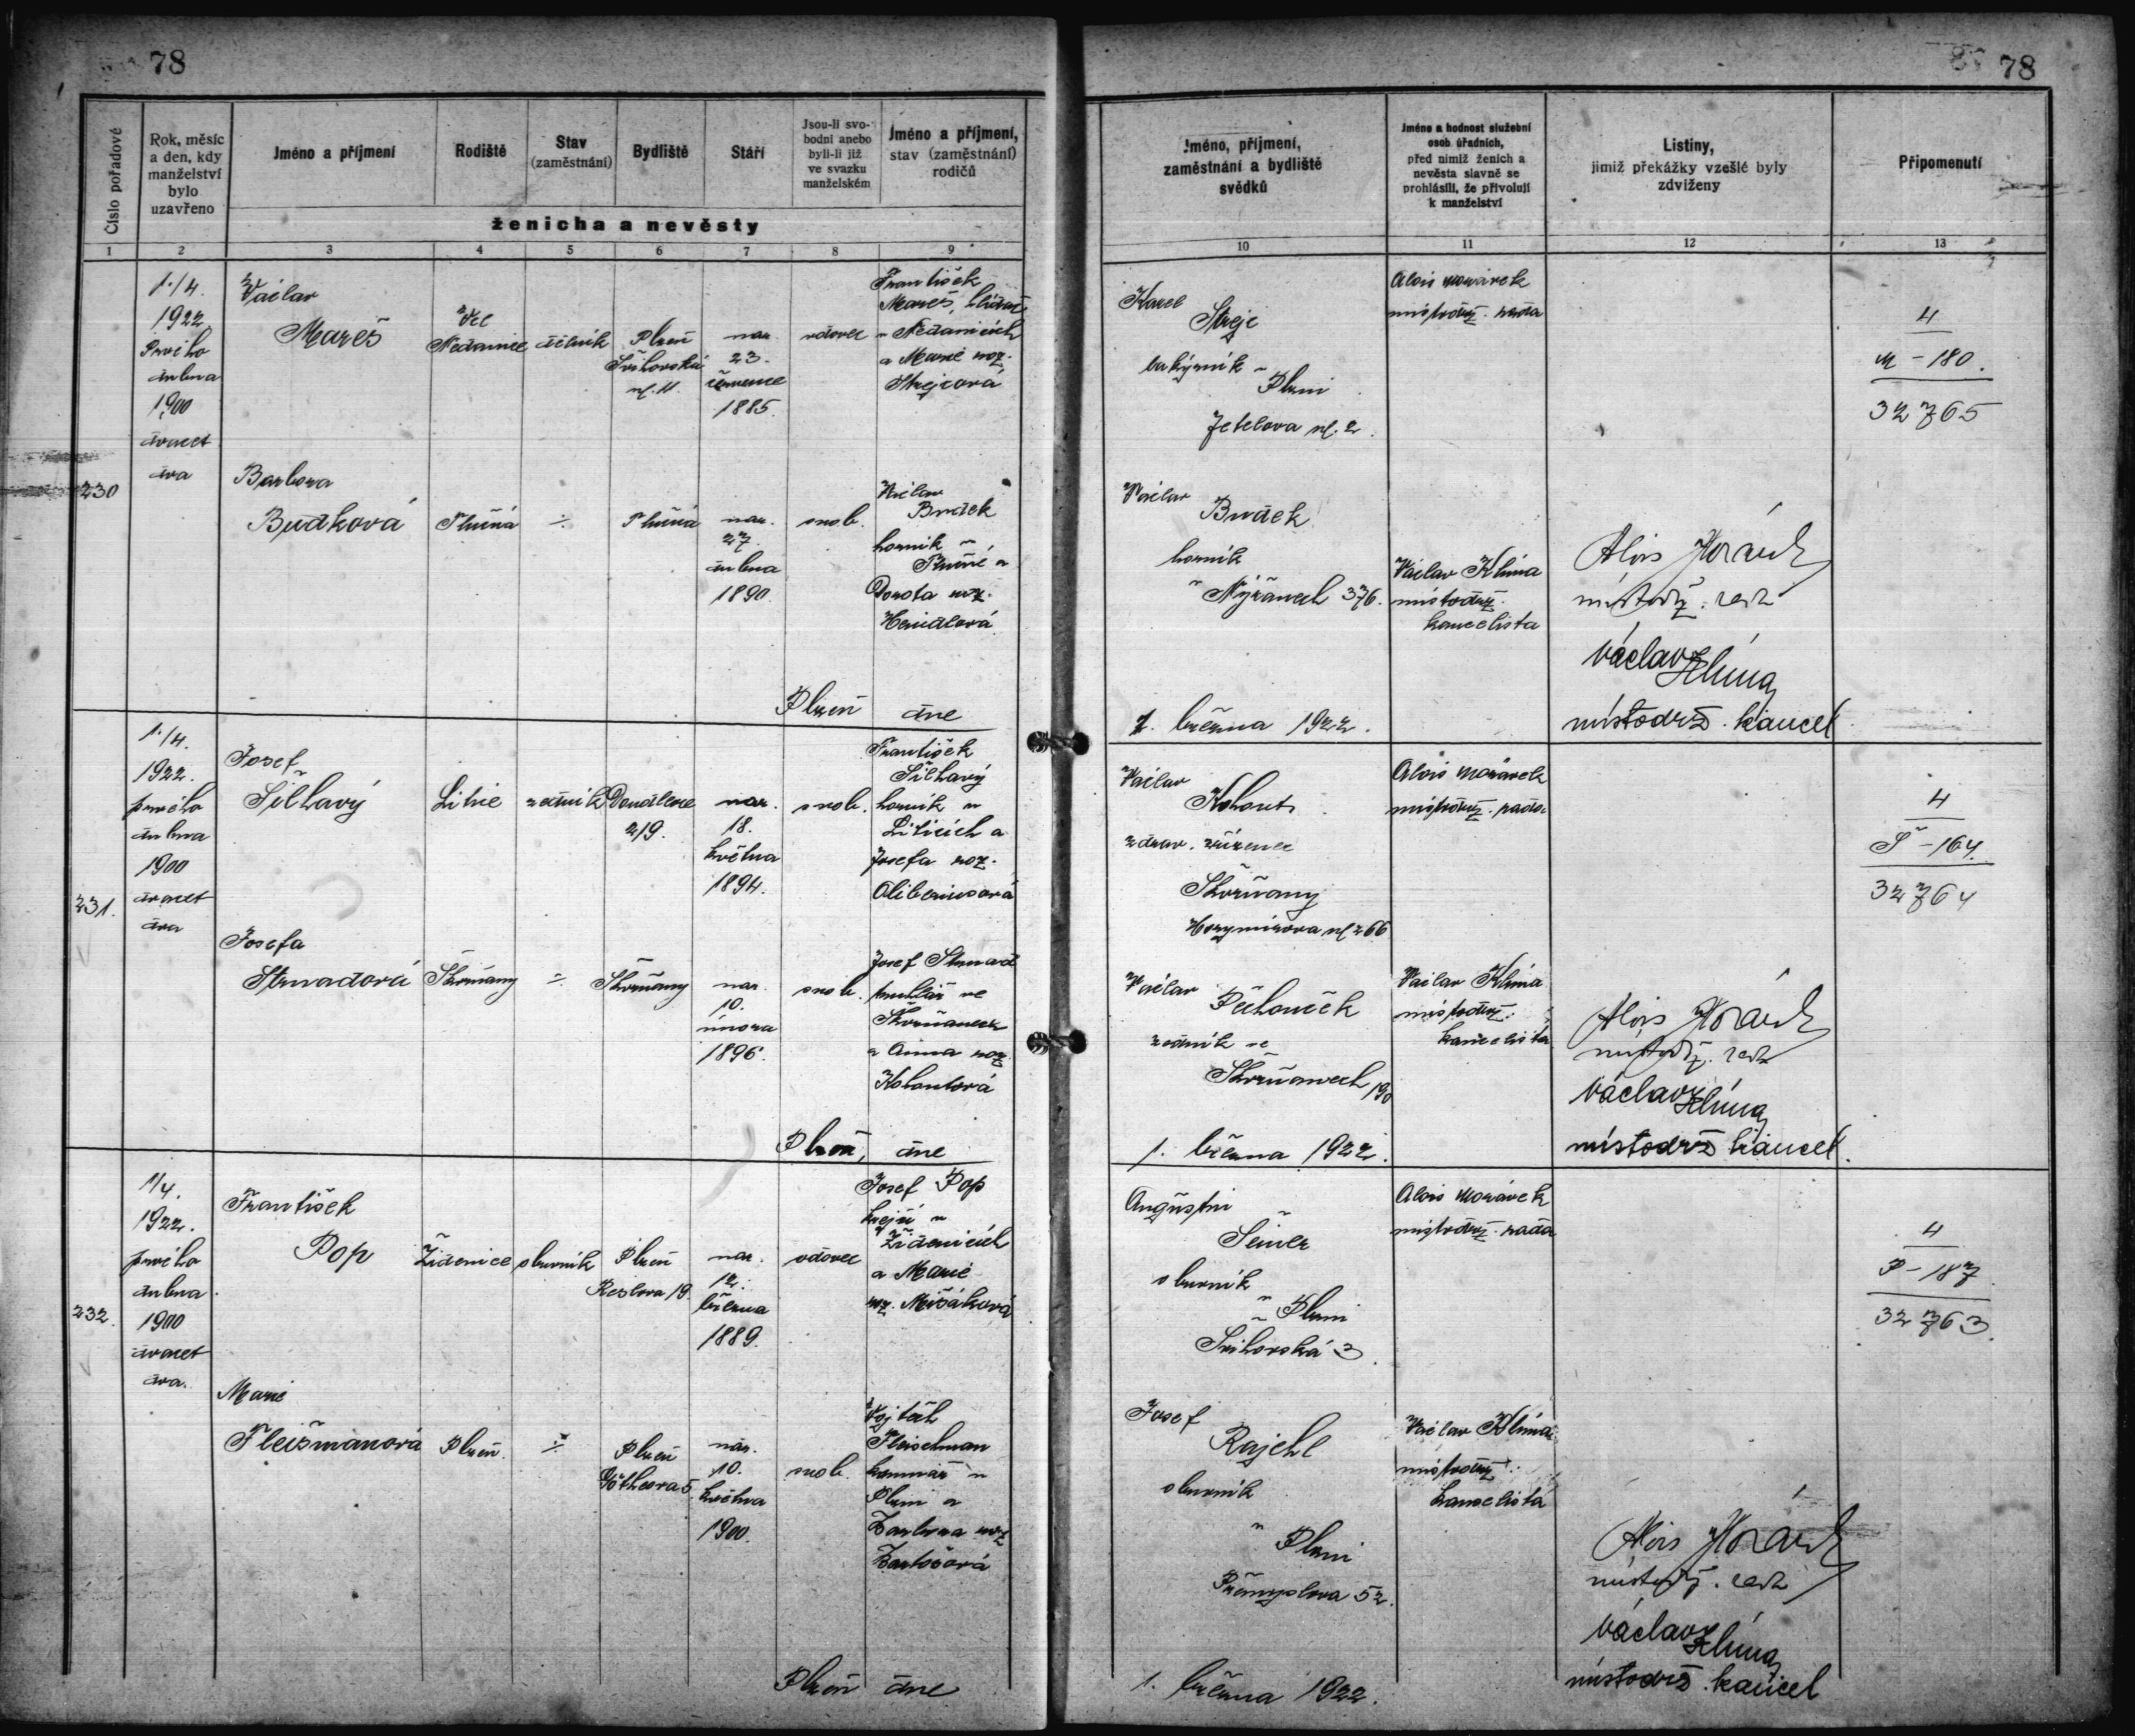 78
78
Číslo pořadové
Rok, měsíc
a den, kdy
manželství
bylo
uzavřeno
Jméno a příjmení
Rodiště
Stav
(zaměstnání)
Bydliště
Stáří
Jsou-li svo-
bodni anebo
byli-li již
ve svazku
manželském
Jméno a příjmení,
stav (zaměstnání)
rodičů
ženicha a nevěsty
1 2 3 4 5 6 7 8 9
Jméno, příjmení,
zaměstnání a bydliště
svědků
Jméno a hodnost služební
osob úřadních,
před nimiž ženich a
nevěsta slavně se
prohlásili, že přivolují
k manželství
Listiny,
jimiž překážky vzešlé byly
zdviženy
Připomenutí
10 11 12 13
230
1./4.
1922
Prvého
dubna
1900
dvacet
dva
Václav
Mareš
Vel
Nedanice
dělník
Plzeň
Švihovská
ul. 11.
nar.
23.
července
1885.
vdovec
František
Mareš,
v Nedanicích
a Marie roz.
Strejcová
Barbora
Budková
Tlučná
÷
Tlučná
nar.
27.
dubna
1890.
svob.
Václav
Budek
horník v
Tlučné a
Dorota roz.
Plzeň dne
Karel
Strejc
v Plzni
Jetelova ul. 2.
Václav
Budek
horník
v Nýřanech 376.
1. března 1922.
Alois Morávek
místodrž. rada
Václav Klíma
místodrž.
kancelista
Alois Morávek
místodrž. rada
Václav Klíma
místodrž. kancel.
4
M - 180.
32765
231.
1./4.
1922.
prvého
dubna
1900
dvacet
dva
Josef
Šilhavý
Litice
zedník
Doudlevce
219.
nar.
18.
května
1894.
svob.
František
Šilhavý
horník v
Liticích a
Josefa roz.
Josefa
Strnadová
Skvrňany
÷
Skvrňany
nar.
10.
února
1896.
svob.
Josef Strnad
truhlář ve
Skvrňanech
a Anna roz.
Kohoutová
Plzeň, dne
Václav
Kohout
zdrav. zřízenec
Skvrňany
Horymírova ul. 266
Václav
Pechouček
zedník ve
Skvrňanech 190
1. března 1922.
Alois Morávek
místodrž. rada
Václav Klíma
místodrž.
kancelista
Alois Morávek
místodrž. rada
Václav Klíma
místodrž. kancel.
4
Š - 164.
32764
232.
1/4.
1922.
prvého
dubna
1900
dvacet
dva.
František
Pop
Židenice
obuvník
Plzeň
Reslova 19.
nar.
12.
března
1889.
vdovec
Josef Pop
krejčí v
Židenicích
a Marie
roz. Mišáková
Marie
Fleišmanová
Plzeň.
÷
Plzeň
Götheova 5.
nar.
10.
května
1900.
svob.
Vojtěch
Fleischman
v
Plzni a
Barbora roz.
Bartošová
Plzeň dne
Augustin
Šeiner
obuvník
v Plzni
Švihovská 3.
Josef
Rajchl
obuvník
v Plzni
Přemyslova 52.
1. března 1922.
Alois Morávek
místodrž. rada
Václav Klíma
místodrž.
kancelista
Alois Morávek
místodrž. rada
Václav Klíma
místodrž. kancel
4
P - 187.
32763.